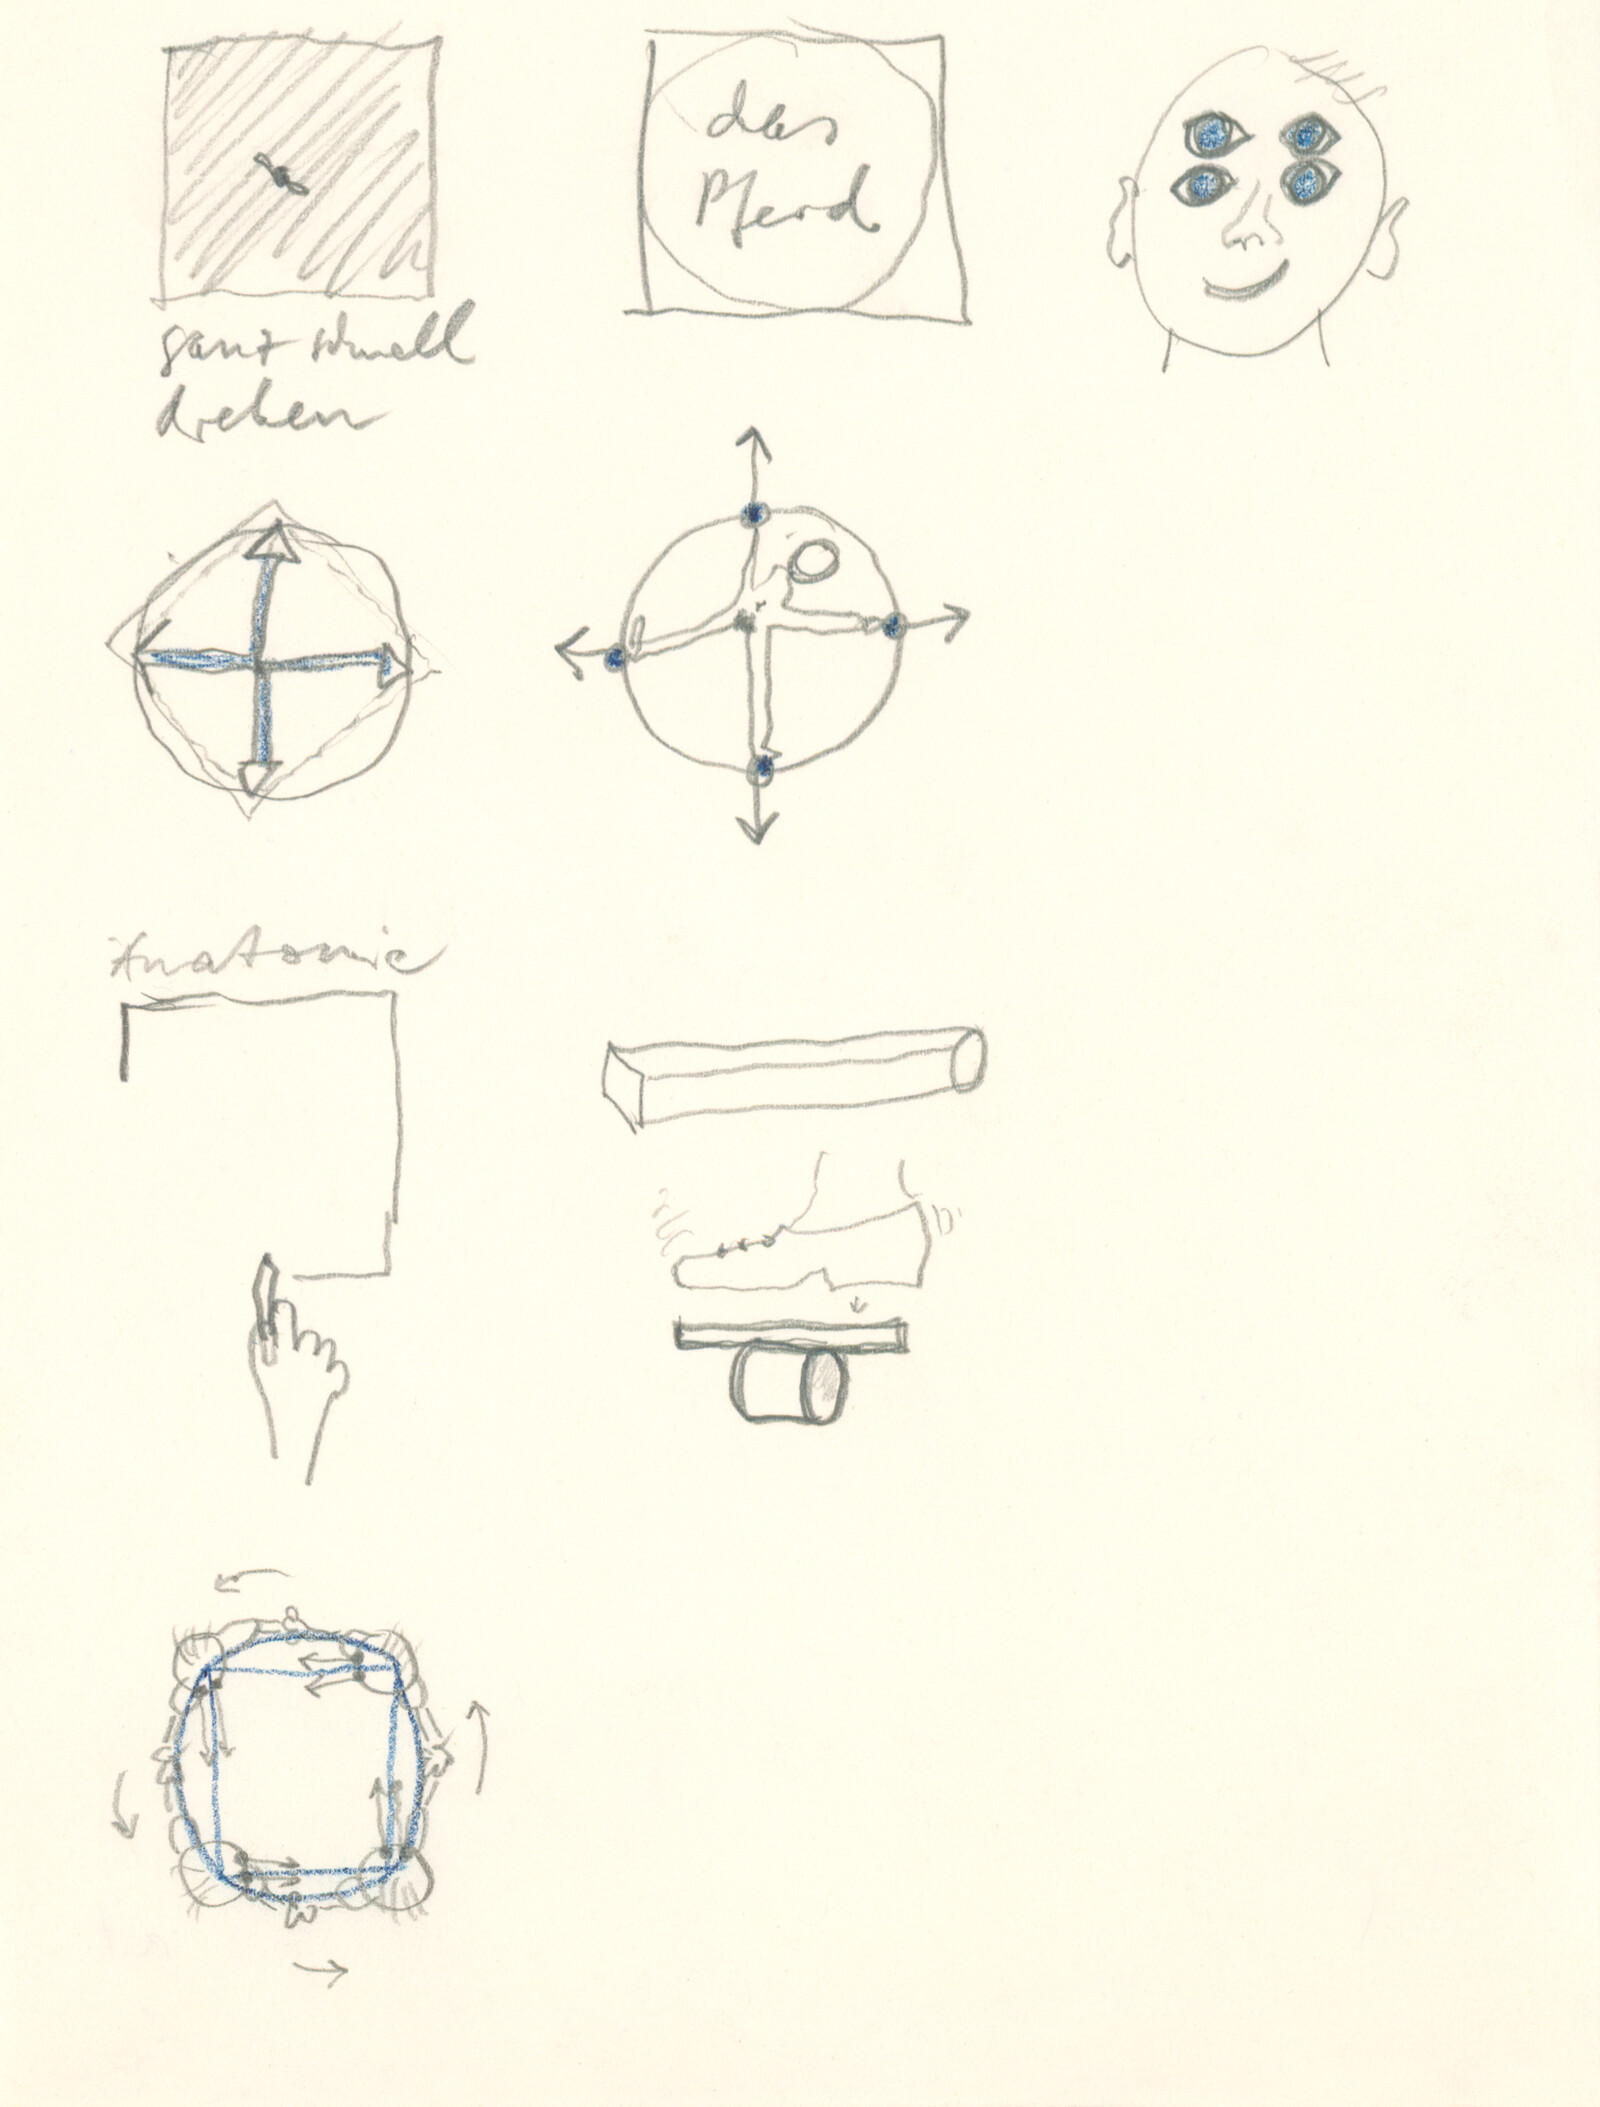 ganz schnell
drehen
das
Pferd
Anatomie